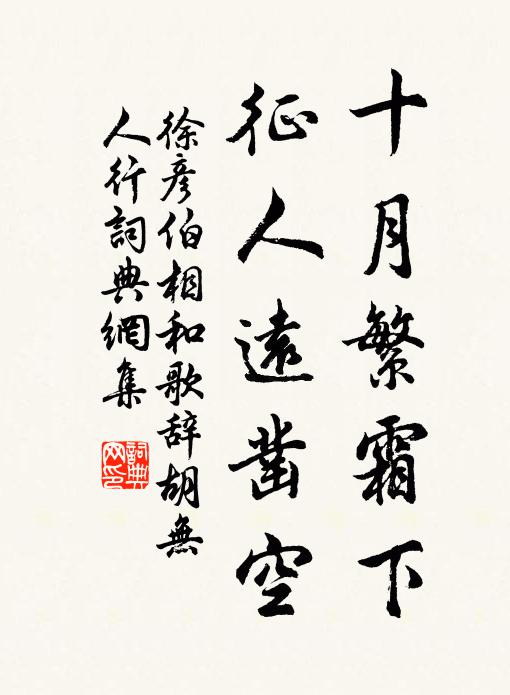 十月繁霜下
征人遠凿空
徐彦伯相和歌辞胡無
人行詞典網集
詞典
网印